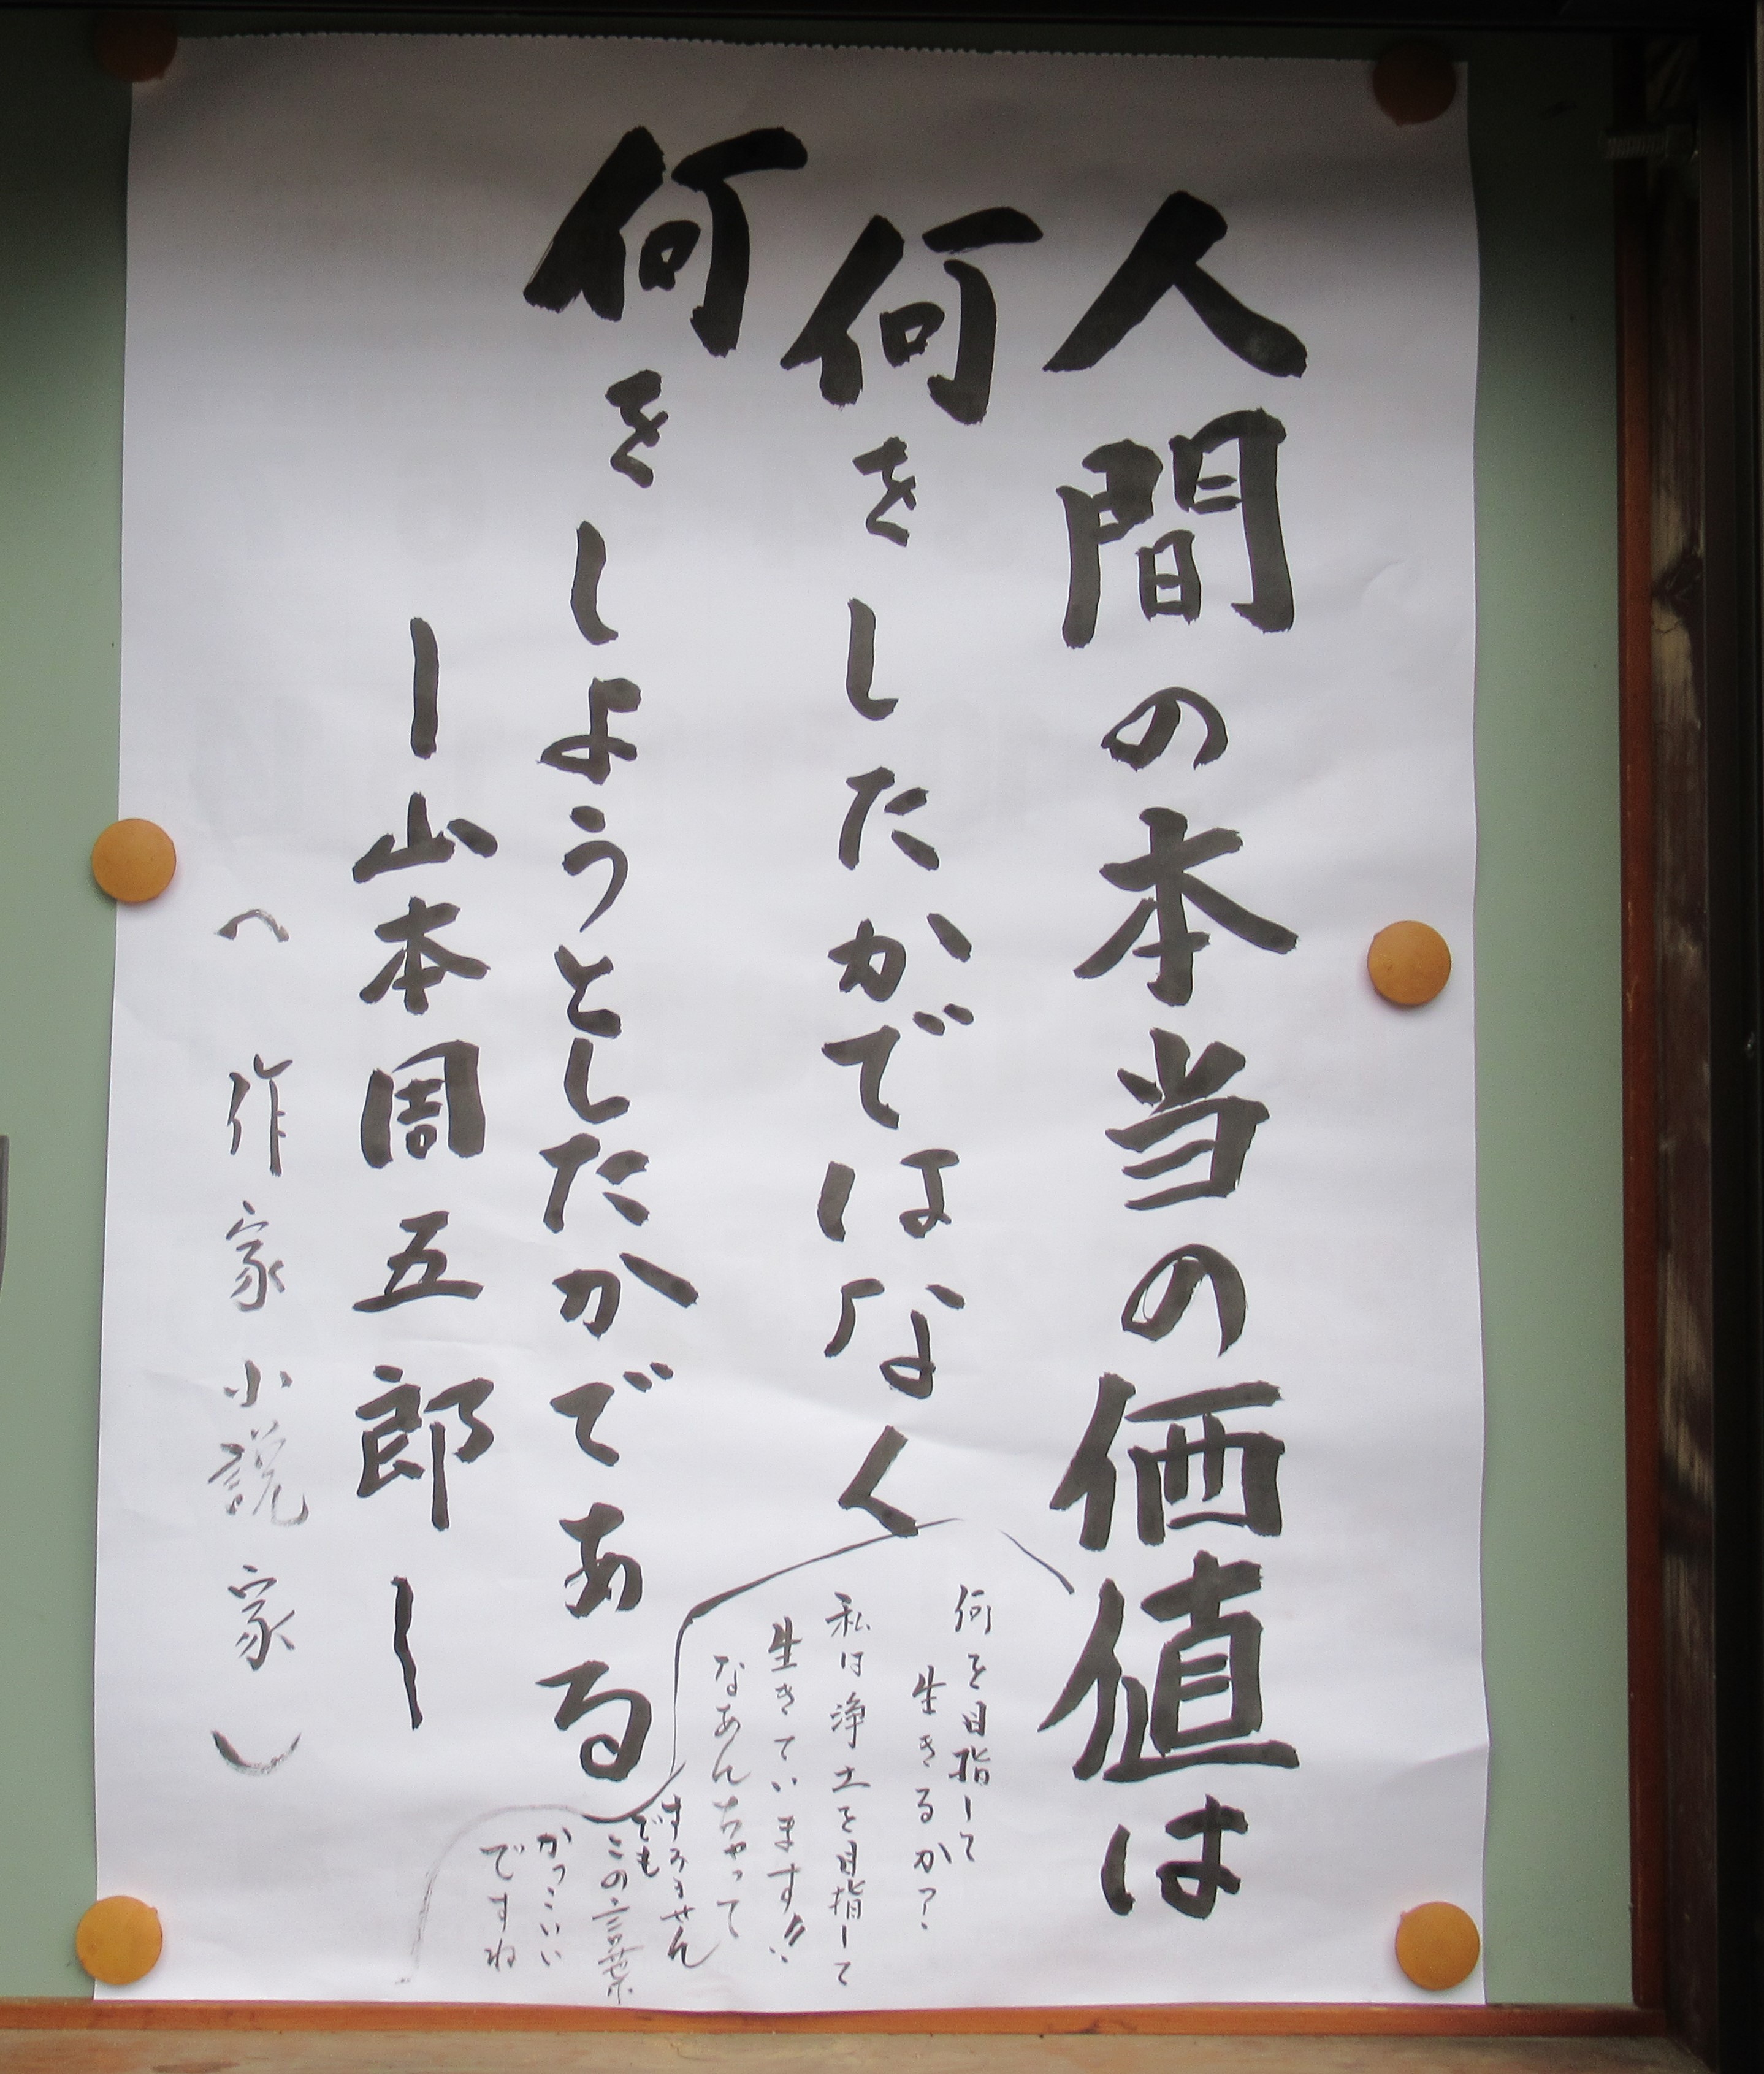 人間の本当の価値は
何をしたかではなく
何をしようとしたかである
ー山本周五郎ー
（作家小説家）
何を目指して
生きるか?
私は浄土を目指して
生きています!!
なあんちゃって
すみません
でも
この言葉
かっこいい
ですね